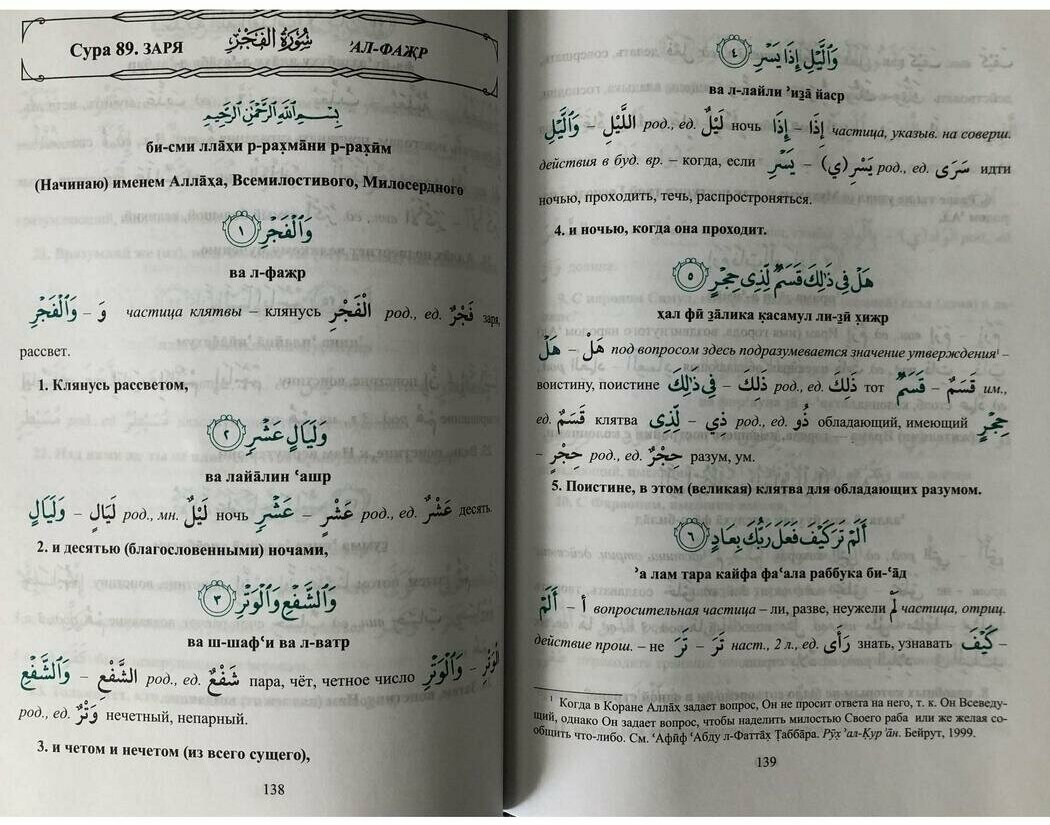 Сура 89. ЗАРЯ سُورَةُ الْفَجْرِ ’АЛ-ФАЖР
بِسْمِ اللَّهِ الرَّحْمَٰنِ الرَّحِيمِ
би-сми лла̄хи р-рах̣ма̄ни р-рах̣ӣм
(Начинаю) именем Алла̄ха, Всемилостивого, Милосердного
وَالْفَجْرِ ١
ва л-фажр
وَالْفَجْرِ – وَ частица клятвы – клянусь الْفَجْرِ род., ед. فَجْرٌ заря,
рассвет.
1. Клянусь рассветом,
وَلَيَالٍ عَشْرٍ ٢
ва лайа̄лин ‘ашр
وَلَيَالٍ – لَيَالٍ род., мн. لَيْلٌ ночь عَشْرٍ – عَشْرٍ род., ед. عَشْرٌ десять.
2. и десятью (благословенными) ночами,
وَالشَّفْعِ وَالْوَتْرِ ٣
ва ш-шаф‘и ва л-ватр
وَالشَّفْعِ – الشَّفْعِ род., ед. شَفْعٌ пара, чёт, четное число وَالْوَتْرِ – الْوَتْرِ
род., ед. وَتْرٌ нечетный, непарный.
3. и четом и нечетом (из всего сущего),
138
وَاللَّيْلِ إِذَا يَسْرِ ٤
ва л-лайли ’из̱а̄ йаср
وَاللَّيْلِ – اللَّيْلِ род., ед. لَيْلٌ ночь إِذَا – إِذَا частица, указыв. на соверш.
действия в буд. вр. – когда, если يَسْرِ – يَسْرِ(ي) род., ед. سَرَى идти
ночью, проходить, течь, распростроняться.
4. и ночью, когда она проходит.
هَلْ فِي ذَٰلِكَ قَسَمٌ لِّذِي حِجْرٍ ٥
х̣ал фӣ з̱а̄лика к̣асамул ли-з̱ӣ х̣ижр
هَلْ – هَلْ под вопросом здесь подразумевается значение утверждения¹ –
воистину, поистине فِي ذَٰلِكَ – ذَلِكَ род., ед. ذَلِكَ тот قَسَمٌ – قَسَمٌ им.,
ед. قَسَمٌ клятва لِّذِي – ذِي род., ед. ذُو обладающий, имеющий حِجْرٍ
– حِجْرٍ род., ед. حِجْرٌ разум, ум.
5. Поистине, в этом (великая) клятва для обладающих разумом.
أَلَمْ تَرَ كَيْفَ فَعَلَ رَبُّكَ بِعَادٍ ٦
’а лам тара кайфа фа‘ала раббука би-‘а̄д
أَلَمْ – أ вопросительная частица – ли, разве, неужели لَمْ частица, отриц.
действие прош. – не تَرَ – تَرَ наст., 2 л., ед. رَأَى знать, узнавать كَيْفَ –
¹ Когда в Коране Алла̄х задает вопрос, Он не просит ответа на него, т. к. Он Всеведу-
щий, однако Он задает вопрос, чтобы наделить милостью Своего раба или же желая со-
общить что-либо. См. ‘Афӣф ‘Абду л-Фатта̄х̣ Т̣абба̄ра. Рӯх̣ ’ал-К̣ур’а̄н. Бейрут, 1999.
139